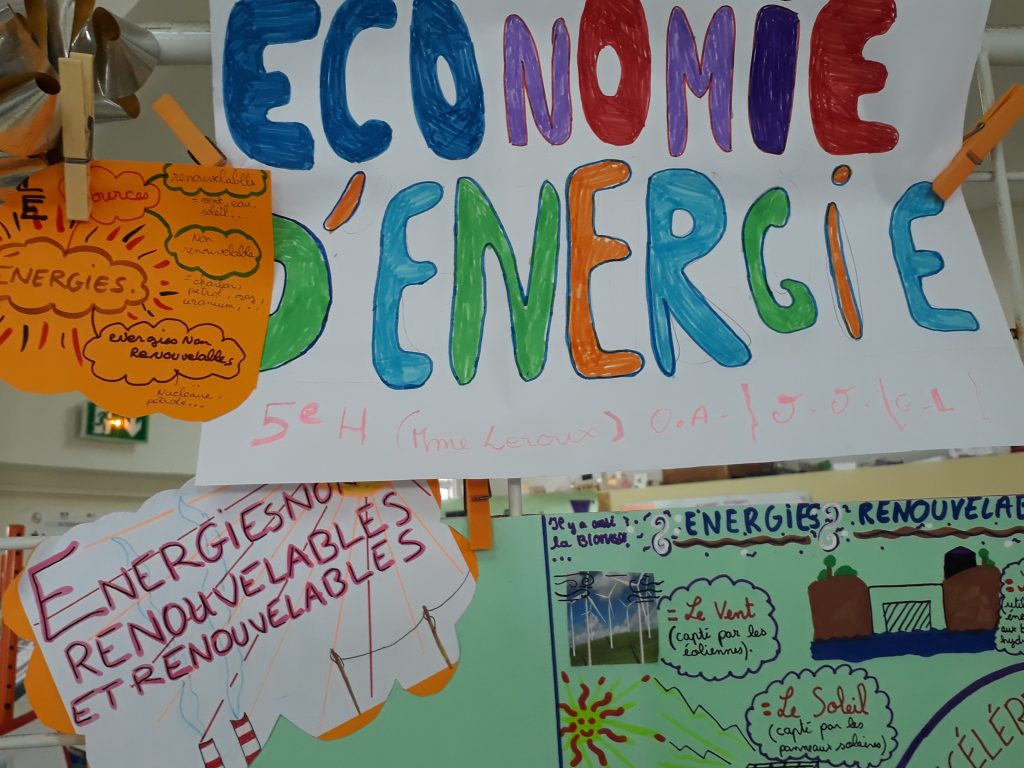 ECONOMIE
D'ÉNERGIE
5e H (Mme Leroux) O.A. } J. J. { G.L }
ources
renouvelables
= vent, eau,
soleil...
Non
renouvelable
= charbon,
pétrole, gaz,
uranium,...
ENERGIES.
energies Non
RENOUVELABLES
Nucléaire,
pétrole...
ENERGIES NON
RENOUVELABLES
ET RENOUVELABLES
Il y a aussi
la Biomasse
...
ENERGIES RENOUVELAB
= Le Vent
(capté par les
éoliennes).
= Le Soleil
(capté par les
panneaux solaires)
CÉLÉR